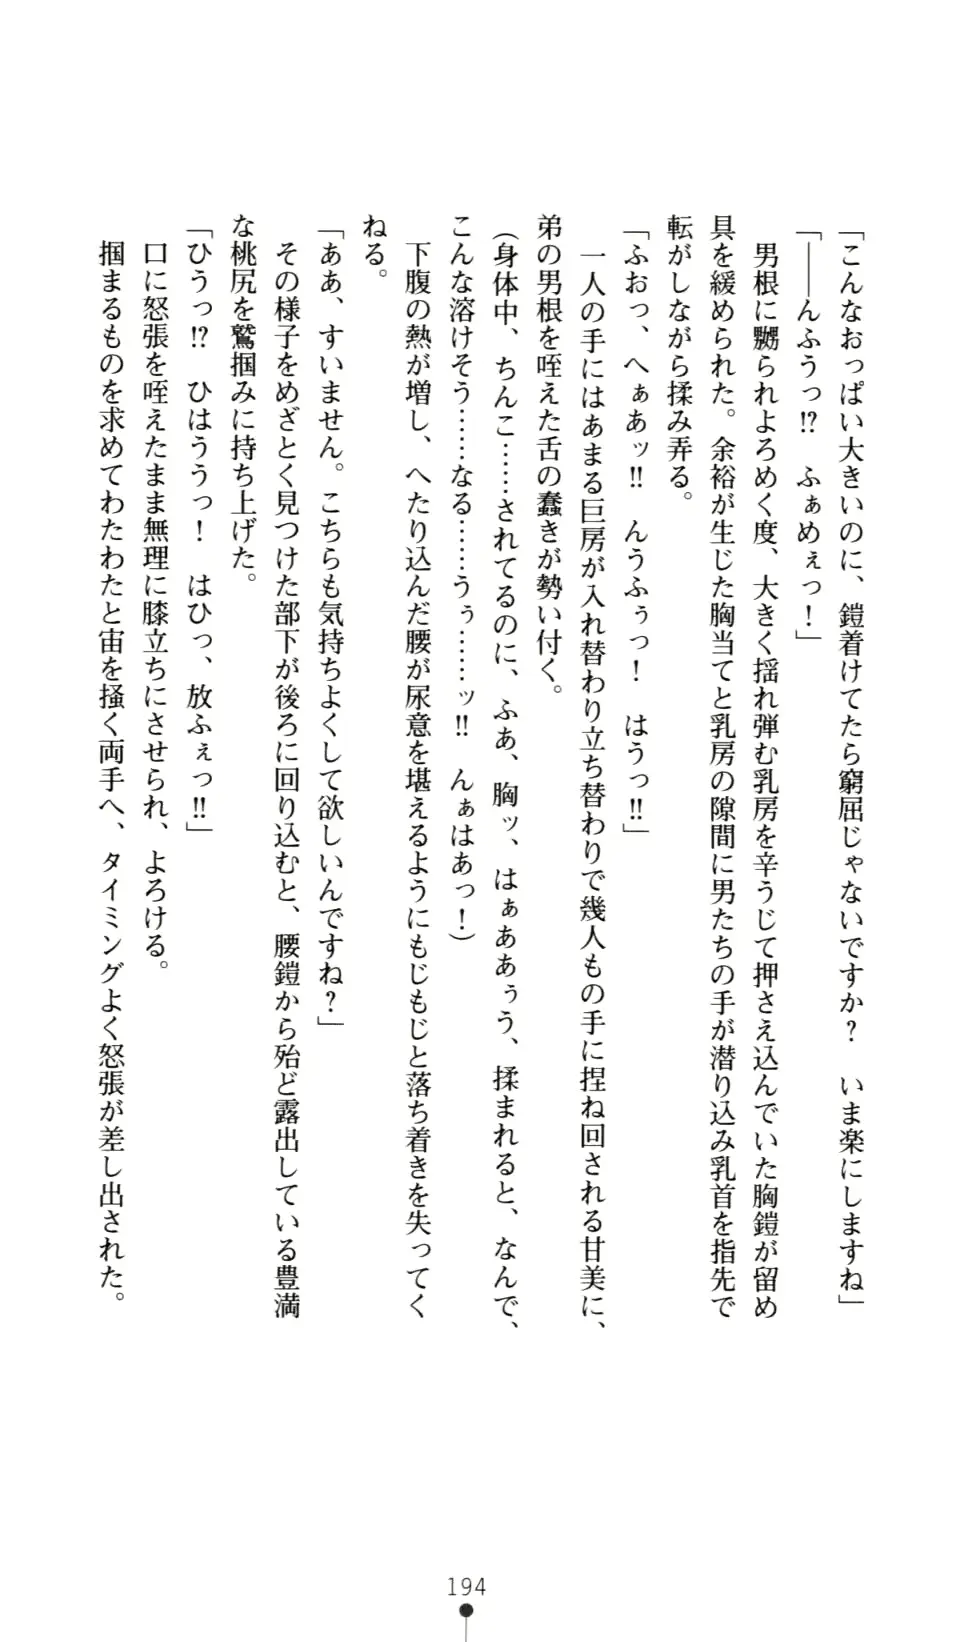 「こんなおっぱい大きいのに、鎧着けてたら窮屈じゃないですか？　いま楽にしますね」
「――んふうっ!?　ふぁめぇっ！」
　男根に嬲られよろめく度、大きく揺れ弾む乳房を辛うじて押さえ込んでいた胸鎧が留め
具を緩められた。余裕が生じた胸当てと乳房の隙間に男たちの手が潜り込み乳首を指先で
転がしながら揉み弄る。
「ふおっ、へぁあッ!!　んうふぅっ！　はうっ!!」
　一人の手にはあまる巨房が入れ替わり立ち替わりで幾人もの手に捏ね回される甘美に、
弟の男根を咥えた舌の蠢きが勢い付く。
（身体中、ちんこ……されてるのに、ふあ、胸ッ、はぁああぅう、揉まれると、なんで、
こんな溶けそう……なる……うぅ……ッ!!　んぁはあっ！）
　下腹の熱が増し、へたり込んだ腰が尿意を堪えるようにもじもじと落ち着きを失ってく
ねる。
「ああ、すいません。こちらも気持ちよくして欲しいんですね？」
　その様子をめざとく見つけた部下が後ろに回り込むと、腰鎧から殆ど露出している豊満
な桃尻を鷲掴みに持ち上げた。
「ひうっ!?　ひはううっ！　はひっ、放ふぇっ!!」
　口に怒張を咥えたまま無理に膝立ちにさせられ、よろける。
　掴まるものを求めてわたわたと宙を掻く両手へ、タイミングよく怒張が差し出された。
194